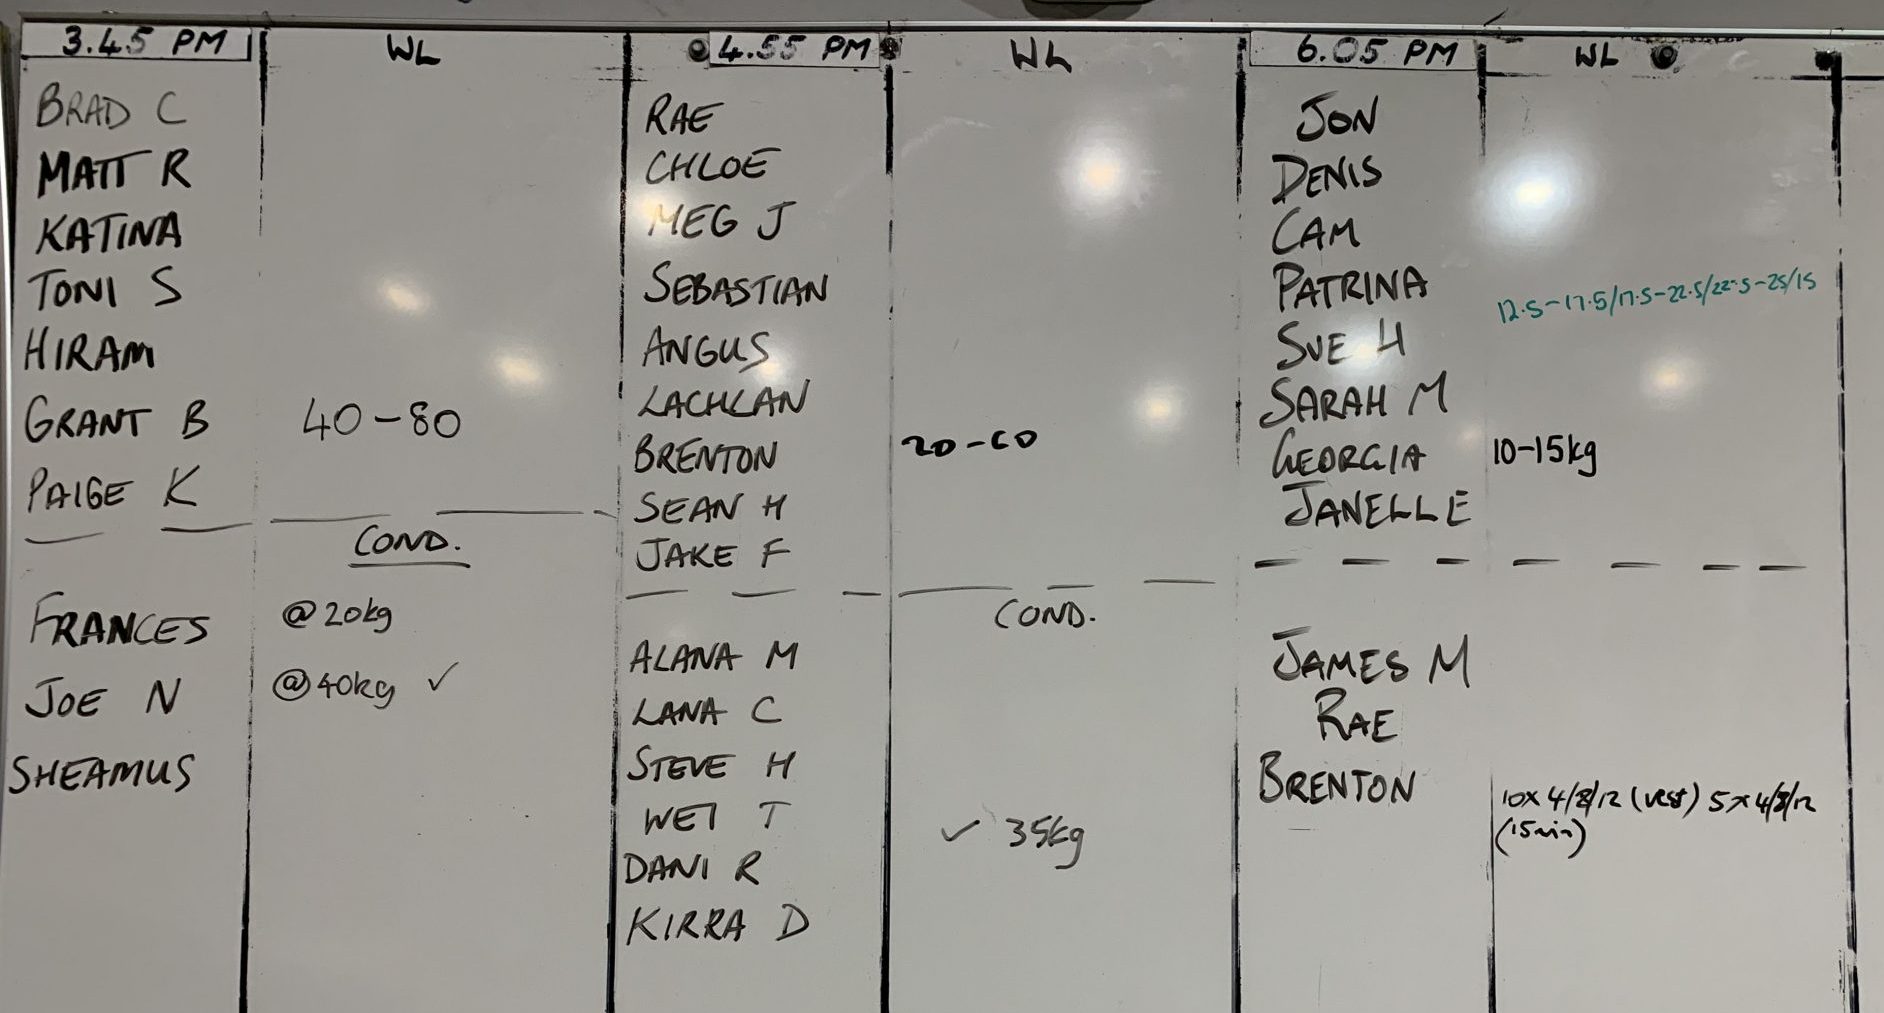 3.45 PM WL
BRAD C
MATT R
KATINA
TONI S
HIRAM
GRANT B 40-80
PAIGE K
COND.
FRANCES @20kg
JOE N @40kg ✓
SHEAMUS
4.55 PM WL
RAE
CHLOE
MEG J
SEBASTIAN
ANGUS
LACHLAN
BRENTON 20-60
SEAN H
JAKE F
COND.
ALANA M
LANA C
STEVE H
WEI T ✓ 35kg
DANI R
KIRRA D
6.05 PM WL
JON
DENIS
CAM
PATRINA 12.5-17.5/17.5-22.5/22.5-25/15
SUE H
SARAH M
GEORGIA 10-15kg
JANELLE
JAMES M
RAE
BRENTON 10x 4/8/12 (vest) 5x 4/8/12
(15min)